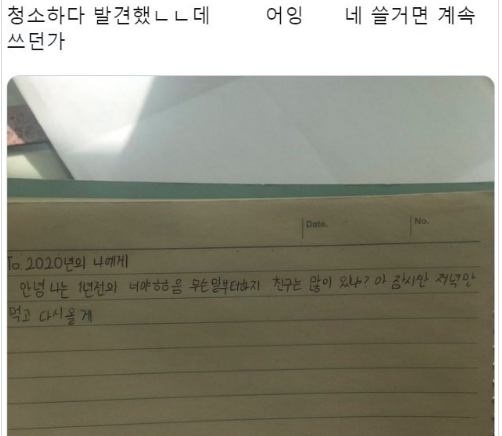 청소하다 발견했ㄴㄴ데 어잉 네 쓸거면 계속
쓰던가
Date.
No.
To. 2020년의 나에게
안녕 나는 1년전의 너야ㅎㅎ음 무슨말부터하지 친구는 많이 있나? 아 잠시만 저녁만
먹고 다시올게